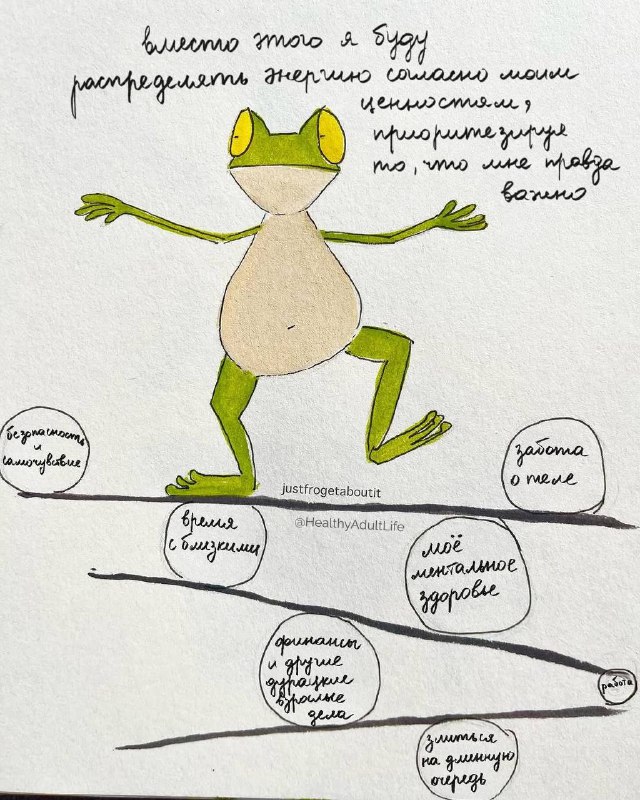 вместо этого я буду
распределять энергию согласно моим
ценностям,
приоритезируя
то, что мне правда
важно
безопасность
и
самочувствие
забота
о теле
justfrogetaboutit
@HealthyAdultLife
время
с близкими
моё
ментальное
здоровье
финансы
и другие
дурацкие
взрослые
дела
работа
злиться
на длинную
очередь